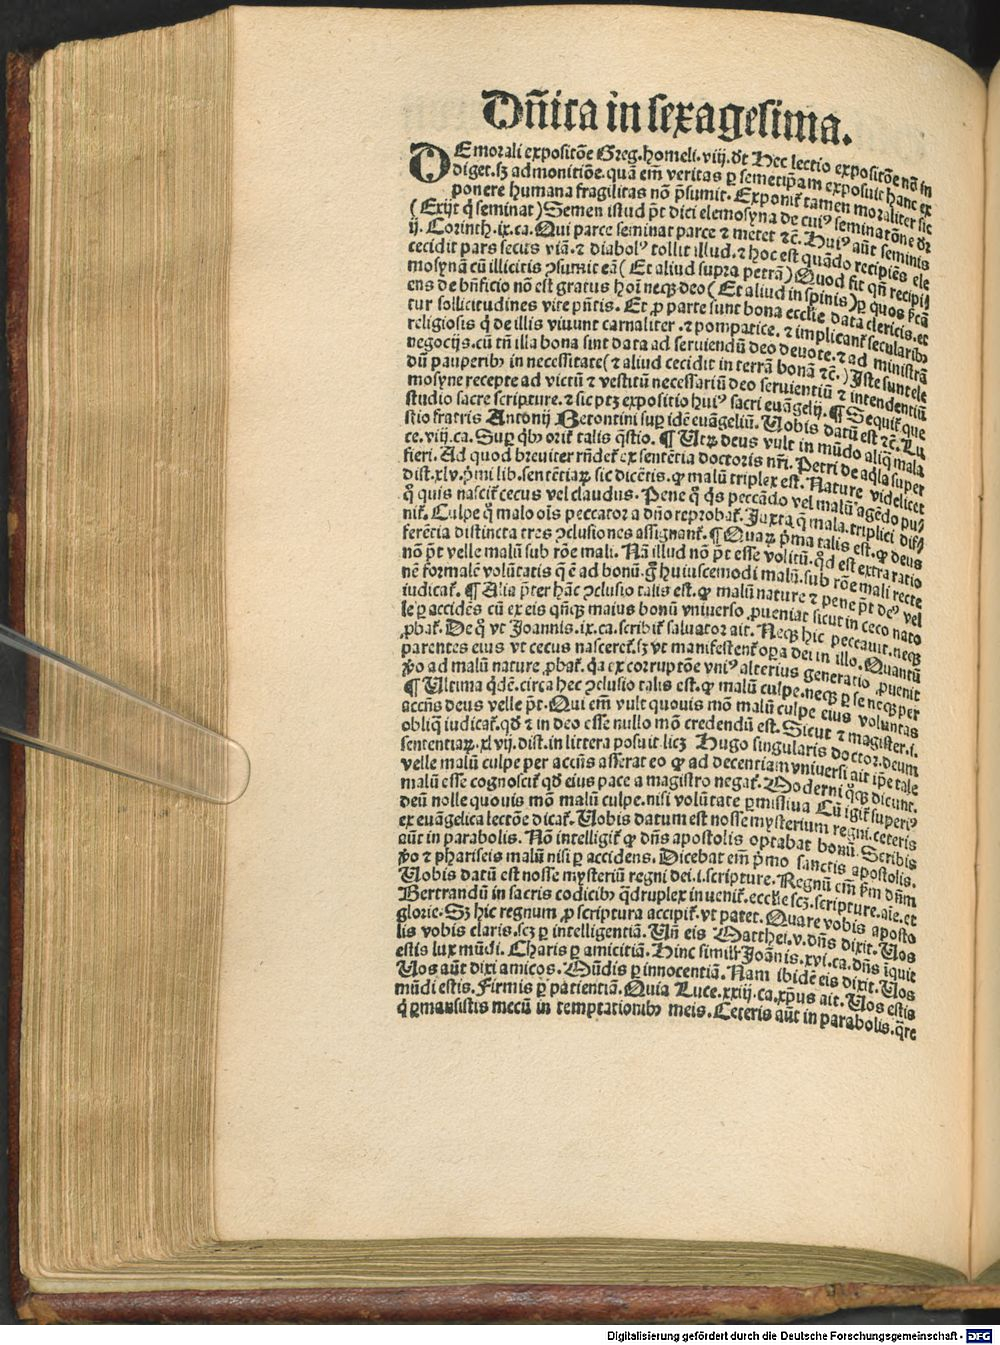 Dñica in sexagesima.
DE morali expositõe Greg. homeli. viij. dt Hec lectio expositõe nõ in
diget. sꝫ admonitiõe. quã em̃ veritas ꝑ semetip̃am exposuit hanc ex
ponere humana fragilitas nõ p̃sumit. Exponit̃ tamen moraliter sic
(Exijt q̃ seminat) Semen istud p̃t dici elemosyna de cuiꝰ seminatõne dr̃
ij. Corinth. ix. ca. Qui parce seminat parce ⁊ metet ⁊c̃. Huiꝰ aũt seminis
cecidit pars secus viã. ⁊ diabolꝰ tollit illud. ⁊ hoc est quãdo recipiẽs ele
mosynã cũ illicitis ꝯsumit eã (Et aliud supra petrã) Quod fit qñ recipi⸗
ens de bñficio nõ est gratus hoĩ neqꝫ deo (Et aliud in spinis) ꝑ quos
tur sollicitudines vite pñtis. Et ꝓ parte sunt bona eccl̃ie data clericis. et
religiosis q̃ de illis viuunt carnaliter. ⁊ pompatice. ⁊ implicant̃ secularibꝰ
negocijs. cũ tñ illa bona sint data ad seruiendũ deo deuote. ⁊ ad ministrã
dũ pauperibꝰ in necessitate (⁊ aliud cecidit in terrã bonã ⁊c̃.) Iste sunt ele
mosyne recepte ad victũ ⁊ vestitũ necessariũ deo seruientiũ ⁊ intendentiũ
studio sacre scripture. ⁊ sic ptꝫ expositio huiꝰ sacri euãgelij. ¶ Sequit̃ que
stio fratris Antonij Betontini suꝑ idẽ euãgeliũ. Vobis datũ est ⁊c̃. Lu
ce. viij. ca. Suꝑ qꝰ orit̃ talis q̃stio. ¶ Vtꝝ deus vult in mũdo aliq̃ mala
fieri. Ad quod breuiter rñdet̃ ex sentẽtia doctoris nr̃i. Petri de aq̃la super
dist. xlv. p̃mi lib. sentẽtiaꝝ sic dicẽtis. ꝙ malũ triplex est. Nature videlicet
q̊ quis nascit̃ cecus vel claudus. Pene q̊ q̃s peccãdo vel malũ agẽdo pu⸗
nit̃. Culpe q̊ malo oĩs peccator a dño reprobat̃. Iuxta q̃ mala. triplici dif⸗
ferẽtia distincta tres ꝯclusiones assignant̃. ¶ Quaꝝ p̃ma talis est. ꝙ deus
nõ p̃t velle malũ sub rõe mali. Nã illud nõ p̃t esse volitũ. qd̃ est extra ratio
nẽ formalẽ volũtatis q̃ ẽ ad bonũ. g̊ huiuscemodi malũ. sub rõe mali recte
iudicat̃. ¶ Alia p̃ter hãc ꝯclusio talis est. ꝙ malũ nature ⁊ pene p̃t deꝰ vel
le ꝑ accidẽs cũ ex eis qñqꝫ maius bonũ vniuerso ꝓueniat sicut in ceco nato
ꝓbat̃. De q̊ vt Joannis. ix. ca. scribit̃ saluator ait. Neqꝫ hic peccauit. neqꝫ
parentes eius vt cecus nasceret̃. sꝫ vt manifestent̃ oꝑa dei in illo. Quantũ
ꝟo ad malũ nature ꝓbat̃. q̃a ex corruptõe vniꝰ alterius generatio ꝓuenit
¶ Ultima q̃dẽ. circa hec ꝯclusio talis est. ꝙ malũ culpe. neqꝫ ꝑ se neqꝫ per
accñs deus velle p̃t. Qui em̃ vult quouis mõ malũ culpe eius voluntas
obliq̃ iudicat̃. qd̃ ⁊ in deo esse nullo mõ credendũ est. Sicut ⁊ magister. i.
sententiaꝝ. xlvij. dist. in littera posuit licꝫ Hugo singularis doctor. deum
velle malũ culpe per accñs asserat eo ꝙ ad decentiam vniuersi ait ip̃e tale
malũ esse cognoscit̃ qd̃ eius pace a magistro negat̃. Moderni q̊qꝫ dicunt.
deũ nolle quouis mõ malũ culpe. nisi volũtate ꝑmissiua Cũ igit̃ superiꝰ
ex euãgelica lectõe dicat̃. Vobis datum est nosse mysterium regni. ceteris
aũt in parabolis. Nõ intelligit̃ ꝙ dñs apostolis optabat bonũ. Scribis
ꝟo ⁊ phariseis malũ nisi ꝑ accidens. Dicebat em̃ p̃mo sanctis apostolis.
Vobis datũ est nosse mysteriũ regni dei. i. scripture. Regnũ em̃ fm̃ dñm
Bertrandũ in sacris codicibꝰ q̃druplex inuenit̃. eccl̃ie scꝫ. scripture. aĩe. et
glorie. Sꝫ hic regnum ꝓ scriptura accipit̃. vt patet. Quare vobis aposto
lis vobis claris. scꝫ ꝑ intelligentiã. Vñ eis Matthei. v. dñs dixit. Vos
estis lux mũdi. Charis ꝑ amicitiã. Hinc simil̃r Joãnis. xvi. ca. dñs iquit
Vos aũt dixi amicos. Mũdis ꝑ innocentiã. Nam ibidẽ eis dixit. Vos
mũdi estis. Firmis ꝑ patientiã. Quia Luce. xxij. ca. xp̃us ait. Vos estis
q̃ ꝑmansistis mecũ in temptationibꝰ meis. Ceteris aũt in parabolis. q̃re
Digitalisierung gefördert durch die Deutsche Forschungsgemeinschaft - DFG